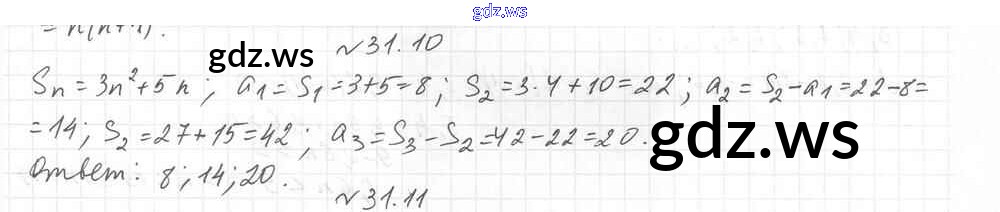 gdz.ws
= n(n+1).
gdz.ws
№31.10
Sn = 3n²+5n; a1 = S1 = 3+5 = 8; S2 = 3·4+10 = 22; a2 = S2 - a1 = 22-8 =
= 14; S2 = 27+15 = 42; a3 = S3 - S2 = 42-22 = 20.
gdz.ws
Ответ: 8; 14; 20.
№31.11